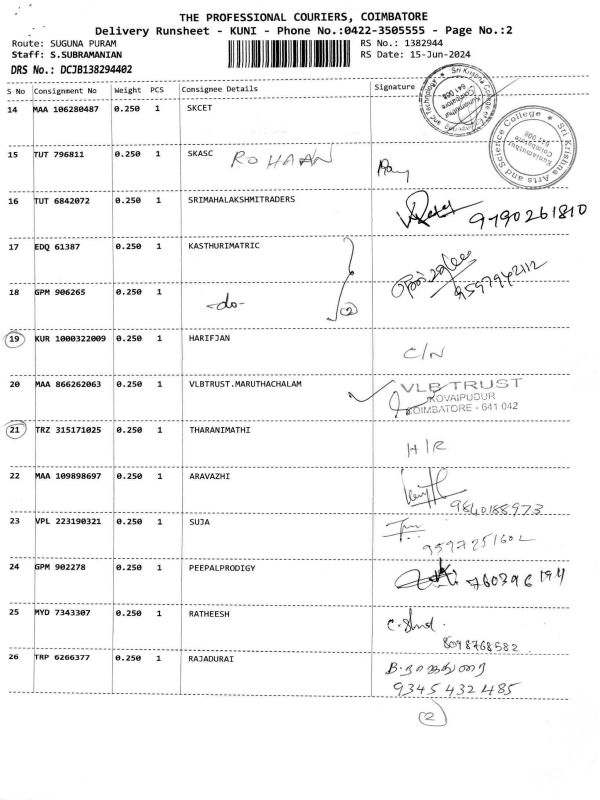 THE PROFESSIONAL COURIERS, COIMBATORE
Delivery Runsheet - KUNI - Phone No.:0422-3505555 - Page No.:2
Route: SUGUNA PURAM RS No.: 1382944
Staff: S.SUBRAMANIAN RS Date: 15-Jun-2024
DRS No.: DCJB138294402
S No Consignment No Weight PCS Consignee Details Signature
14 MAA 106280487 0.250 1 SKCET
Sri Krishna College of Engineering and Technology
Kuniamuthur
Coimbatore
641 008
Sri Krishna Arts and Science College
Kuniamuthur
Coimbatore
641 008
15 TUT 796811 0.250 1 SKASC ROHAAN
16 TUT 6842072 0.250 1 SRIMAHALAKSHMITRADERS 9790261810
17 EDQ 61387 0.250 1 KASTHURIMATRIC 9597942112
18 GPM 906265 0.250 1 -do- 2
19 KUR 1000322009 0.250 1 HARIFJAN C/N
20 MAA 866262063 0.250 1 VLBTRUST.MARUTHACHALAM VLB TRUST
KOVAIPUDUR
COIMBATORE - 641 042
21 TRZ 315171025 0.250 1 THARANIMATHI H/R
22 MAA 109898697 0.250 1 ARAVAZHI 9840188973
23 VPL 223190321 0.250 1 SUJA 9597251602
24 GPM 902278 0.250 1 PEEPALPRODIGY
25 MYD 7343307 0.250 1 RATHEESH
8098768582
26 TRP 6266377 0.250 1 RAJADURAI B.ராஜதுரை
9345432485
2